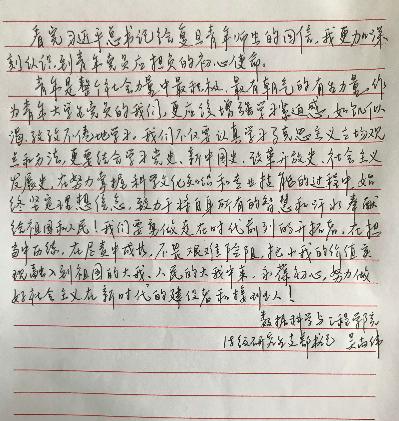 看完习近平总书记给复旦青年师生的回信，我更加深
刻认识到青年党员应担负的初心使命。
青年是整个社会力量中最积极、最有朝气的有生力量，作
为青年大学生党员的我们，更应该增强学习紧迫感，如饥似
渴、孜孜不倦地学习。我们不仅要认真学习马克思主义立场观
点和方法，更要结合学习党史、新中国史、改革开放史、社会主义
发展史，在努力掌握科学文化知识和专业技能的过程中，始
终坚定理想信念，致力于将自身所有的智慧和汗水奉献
给祖国和人民！我们要争做走在时代前列的开拓者，在担
当中历练，在尽责中成长，不畏艰难险阻，把小我的价值实
现融入到祖国的大我、人民的大我中来，永葆初心，努力做
好社会主义在新时代的建设者和接班人！
数据科学与工程学院
级研究生支部书记 吴